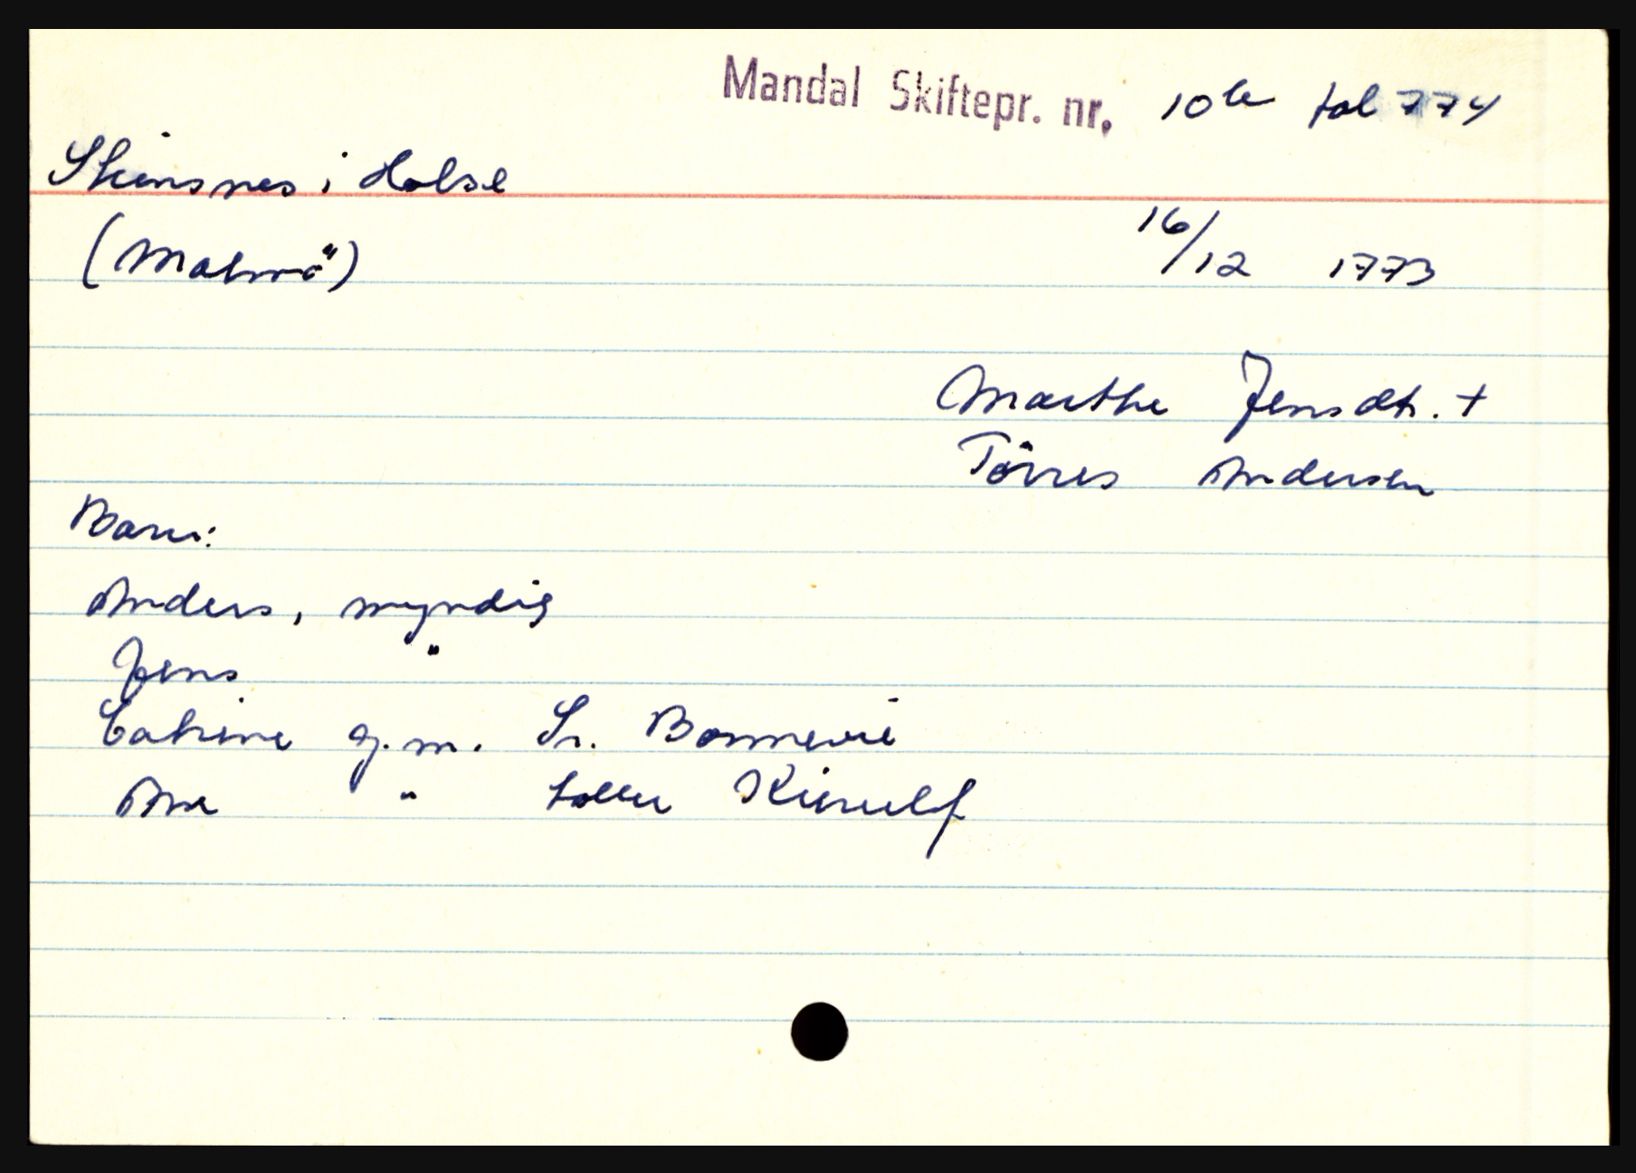 Mandal Skiftepr. nr. 10b fol 774
Skinsnes i Halse
(Malmö)
16/12 1773
Marthe Jensdtr. +
Tørres Andersen
Barn:
Anders, myndig
Jens "
Catrine g.m. Sr. Bonnevie
Ane " toller Kierulf